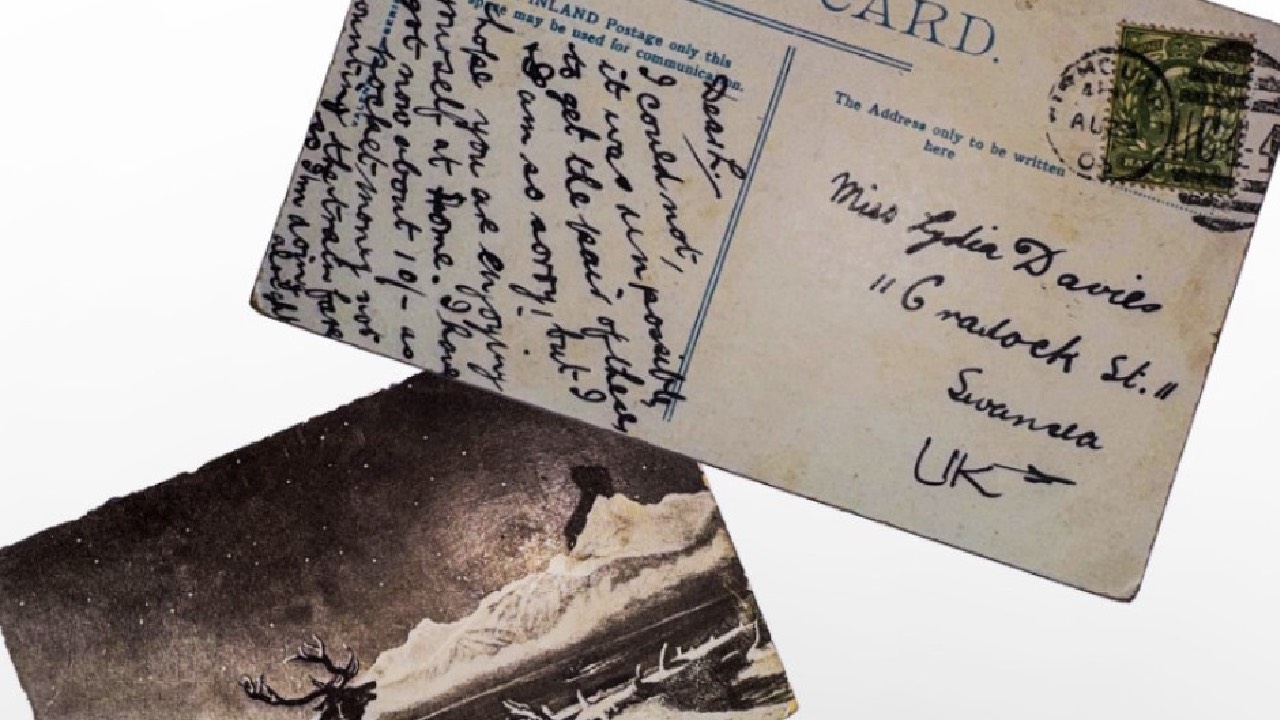 CARD.
INLAND Postage only this
space may be used for communication.
Dear L.
I could not,
it was impossible
to get the pair of these
I am so sorry! but I
hope you are enjoying
yourself at Home. I have
got now about 10/- as
pocket-money not
counting the train fare
so I'm doing
alright
The Address only to be written
here
Miss Lydia Davies
"Cradock St."
Swansea
UK